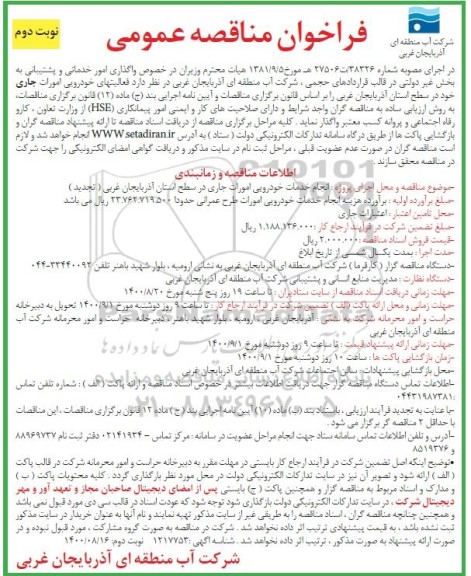 نوبت دوم
فراخوان مناقصه عمومی
شرکت آب منطقه ای
آذربایجان غربی
در اجرای مصوبه شماره ۳۸۳۲۶/ت۲۷۵۰۶ هـ مورخ ۱۳۸۱/۹/۵ هیات محترم وزیران در خصوص واگذاری امور خدماتی و پشتیبانی به
بخش غیر دولتی در قالب قراردادهای حجمی ، شرکت آب منطقه ای آذربایجان غربی در نظر دارد فعالیتهای خودرویی امورات جاری
خود در سطح استان آذربایجان غربی را بر اساس قانون برگزاری مناقصات و آیین نامه اجرایی بند (ج) ماده (۱۲) قانون برگزاری مناقصات،
به روش ارزیابی ساده به مناقصه گران واجد شرایط و دارای صلاحیت های کار و ایمنی امور پیمانکاری (HSE) از وزارت تعاون ، کارو
رفاه اجتماعی و پروانه کسب معتبر واگذار نماید . کلیه مراحل برگزاری مناقصه از دریافت اسناد مناقصه تا ارائه پیشنهاد مناقصه گران و
بازگشایی پاکت ها از طریق درگاه سامانه تدارکات الکترونیکی دولت ( ستاد ) به آدرس WWW.setadiran.ir انجام خواهد شد و لازم
است مناقصه گران در صورت عدم عضویت قبلی ، مراحل ثبت نام در سایت مذکور و دریافت گواهی امضای الکترونیکی را جهت شرکت
در مناقصه محقق سازند .
اطلاعات مناقصه و زمانبندی
-موضوع مناقصه و محل اجرای پروژه : انجام خدمات خودرویی امورات جاری در سطح استان آذربایجان غربی ( تجدید )
-مبلغ برآورد اولیه : برآورده هزینه انجام خدمات خودرویی امورات طرح عمرانی حدودا ۲۳،۷۶۲،۷۱۹،۵۰۰ ریال می باشد
-محل تامین اعتبار : اعتبارات جاری
-مبلغ تضمین شرکت در فرآیند ارجاع کار : ۱،۱۸۸،۱۳۶،۰۰۰ ریال
-قیمت فروش اسناد مناقصه : ۲،۰۰۰،۰۰۰ ریال
-مدت اجرا : بمدت یکسال شمسی از تاریخ ابلاغ
-دستگاه مناقصه گزار ( کارفرما ) شرکت آب منطقه ای آذربایجان غربی به نشانی ارومیه ، بلوار شهید باهنر تلفن ۳۳۴۴۰۰۹۲-۰۴۴
-دستگاه نظارت : مدیریت منابع انسانی و پشتیبانی شرکت آب منطقه ای آذربایجان غربی
-مهلت زمانی دریافت اسناد مناقصه از سایت ستاد ایران : تا ساعت ۱۹ روز پنج شنبه مورخ ۱۴۰۰/۸/۲۰
-مهلت زمانی و محل ارائه پاکت (الف) تضمین شرکت در فرآیند ارجاع کار : تا ساعت ۹ روز دوشنبه مورخ ۱۴۰۰/۹/۱ تحویل به دبیرخانه
حراست و امور محرمانه شرکت آب منطقه ای آذربایجان غربی ، ارومیه ، بلوار شهید باهنر ، دبیرخانه حراست و امور محرمانه شرکت آب
منطقه ای آذربایجان غربی
-مهلت زمانی ارائه پیشنهاد قیمت : تا ساعت ۹ روز دوشنبه مورخ ۱۴۰۰/۹/۱
-زمان بازگشایی پاکت ها : ساعت ۱۰ روز دوشنبه مورخ ۱۴۰۰/۹/۱
-محل بازگشایی پیشنهادات: سالن اجتماعات شرکت آب منطقه ای آذربایجان غربی
-اطلاعات تماس دستگاه مناقصه گزار جهت دریافت اطلاعات بیشتر در خصوص اسناد مناقصه و ارائه پاکت ( الف ) : شماره تلفن تماس
۰۴۴۳۱۹۸۷۳۸۱:
-با عنایت به تجدید فرآیند ارزیابی ، باستناد بند (ب) ماده (۱۰) آیین نامه اجرایی بند (ج) ماده ۱۲ قانون برگزاری مناقصات ، این مناقصات
با حداقل ۲ مناقصه گر برگزار می شود .
-آدرس و تلفن اطلاعات تماس سامانه ستاد جهت انجام مراحل عضویت در سامانه : مرکز تماس – ۰۲۱۴۱۹۳۴ دفتر ثبت نام ۸۸۹۶۹۷۳۷
و ۸۵۱۹۳۷۶
*توضیح اینکه اصل تضمین شرکت در فرآیند ارجاع کار بایستی در مهلت مقرر به دبیرخانه حراست و امور محرمانه شرکت در قالب پاکت
( الف ) ارائه شود و تصویر آن نیز در سایت تدارکات الکترونیکی دولت در محل مورد نظر بارگذاری گردد . کلیه محتویات پاکت ( ب )
و مدارک و اسناد مربوط به مناقصه گزار و همچنین پاکت ( ج ) بایستی پس از امضای دیجیتال صاحبان مجاز و تعهد آور و مهر
دیجیتال شرکت ، در سایت تدارکات الکترونیکی دولت بارگذاری شود توجه شود که عودت اسناد در قالب سی دی مورد قبول نمی باشد
و همچنین چنانچه مناقصه گران ، اسناد مناقصه را به طریقی غیر از سایت مذکور تهیه نمایند و نام آنها به عنوان خریدار در سایت مذکور
ثبت نشده باشد ، به قیمت پیشنهادی ترتیب اثر داده نخواهد شد . شرکت در مناقصه به صورت گروه مشارکت ، مورد قبول نبوده و در
صورت ارائه به پیشنهادی ترتیب اثر داده نخواهد شد . شناسه آگهی :۱۲۱۷۷۵۳ نوبت دوم: ۱۴۰۰/۰۸/۱۶
شرکت آب منطقه ای آذربایجان غربی